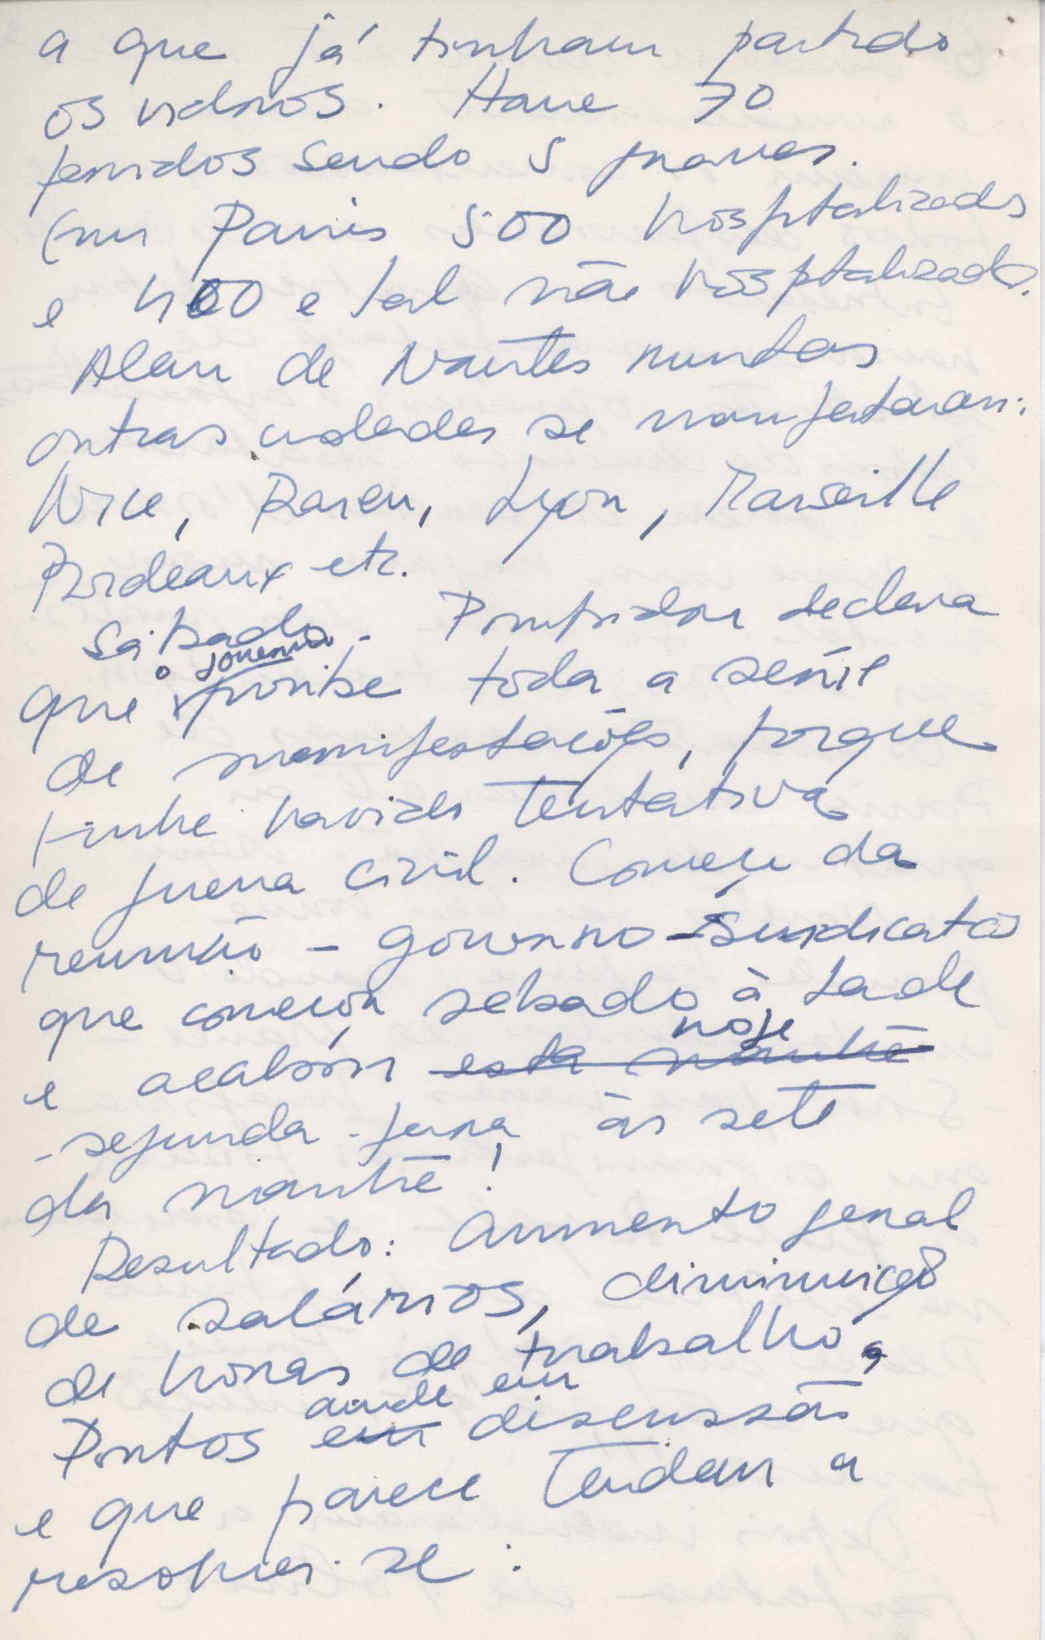 a que já tinham partido
os vidros. Houve 70
feridos sendo 5 graves.
(em Paris 500 hospitalizados
e 400 e tal não hospitalizados.
Além de Nantes muitas
outras cidades se manifestaram:
Nice, Rouen, Lyon, Marseille
Bordeaux etc.
Sábado - Pompidou declara
o governo
que proibe toda a série
de manifestações, porque
tinha havido tentativa
de guerra civil. Começa da
reunião - governo - sindicatos
que começou sábado à tarde
hoje
e acabou esta manhã
- segunda-feira às sete
da manhã!
Resultado: aumento geral
de salários, diminuição
de horas de trabalho,
ainda em
Pontos em discussão
e que parece tendem a
resolver-se: